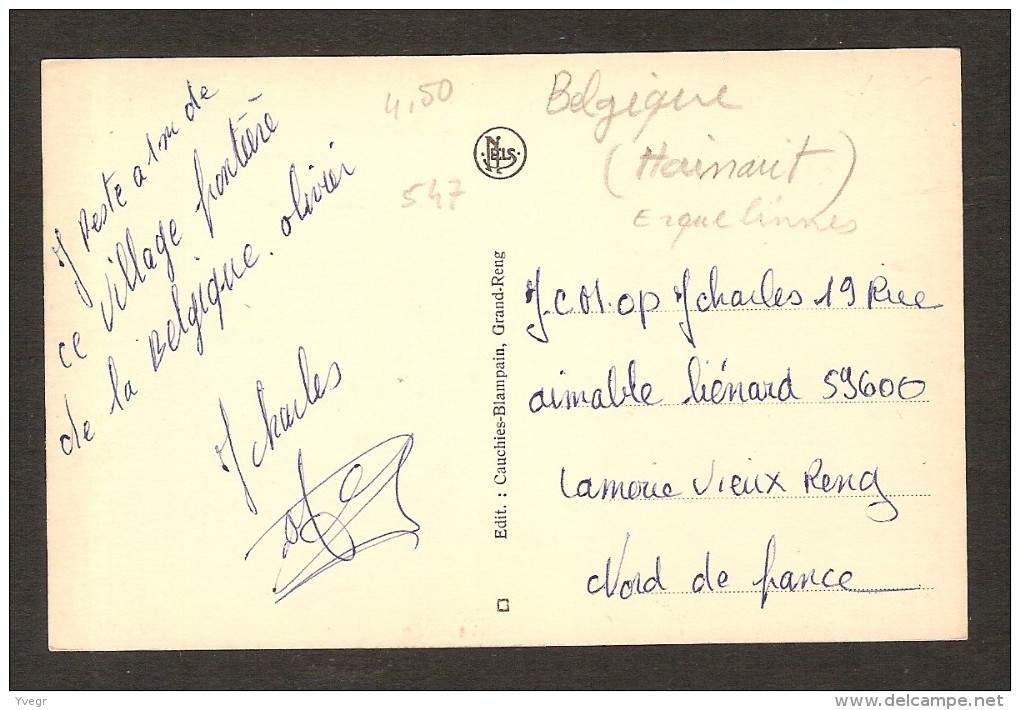 J reste a 1m de
ce village frontière
de la Belgique. olivier
J charles
4,50
547
Belgique
(Hainaut)
Erquelinnes
NELS
Edit. : Cauchies-Blampain, Grand-Reng
J charles 19 Rue
aimable liénard 59600
Lamerie Vieux Reng
Nord de france
Yvegr
www.delcampe.net